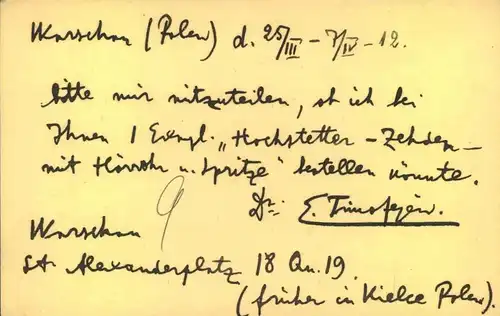 Warschau (Polen) d. 25/III – 7/IV – 12.
bitte mir mitzuteilen, ob ich bei
Ihnen 1 Exempl. „Hochstetter – Zehden –
mit Hörrohr u. Spritze“ bestellen könnte.
Dr. E. Timofejew.
Warschau
St. Alexanderplatz 18 Qu. 19.
(früher in Kielce Polen).